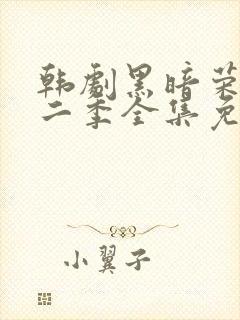 韩剧黑暗荣
二季全集免
小翼子